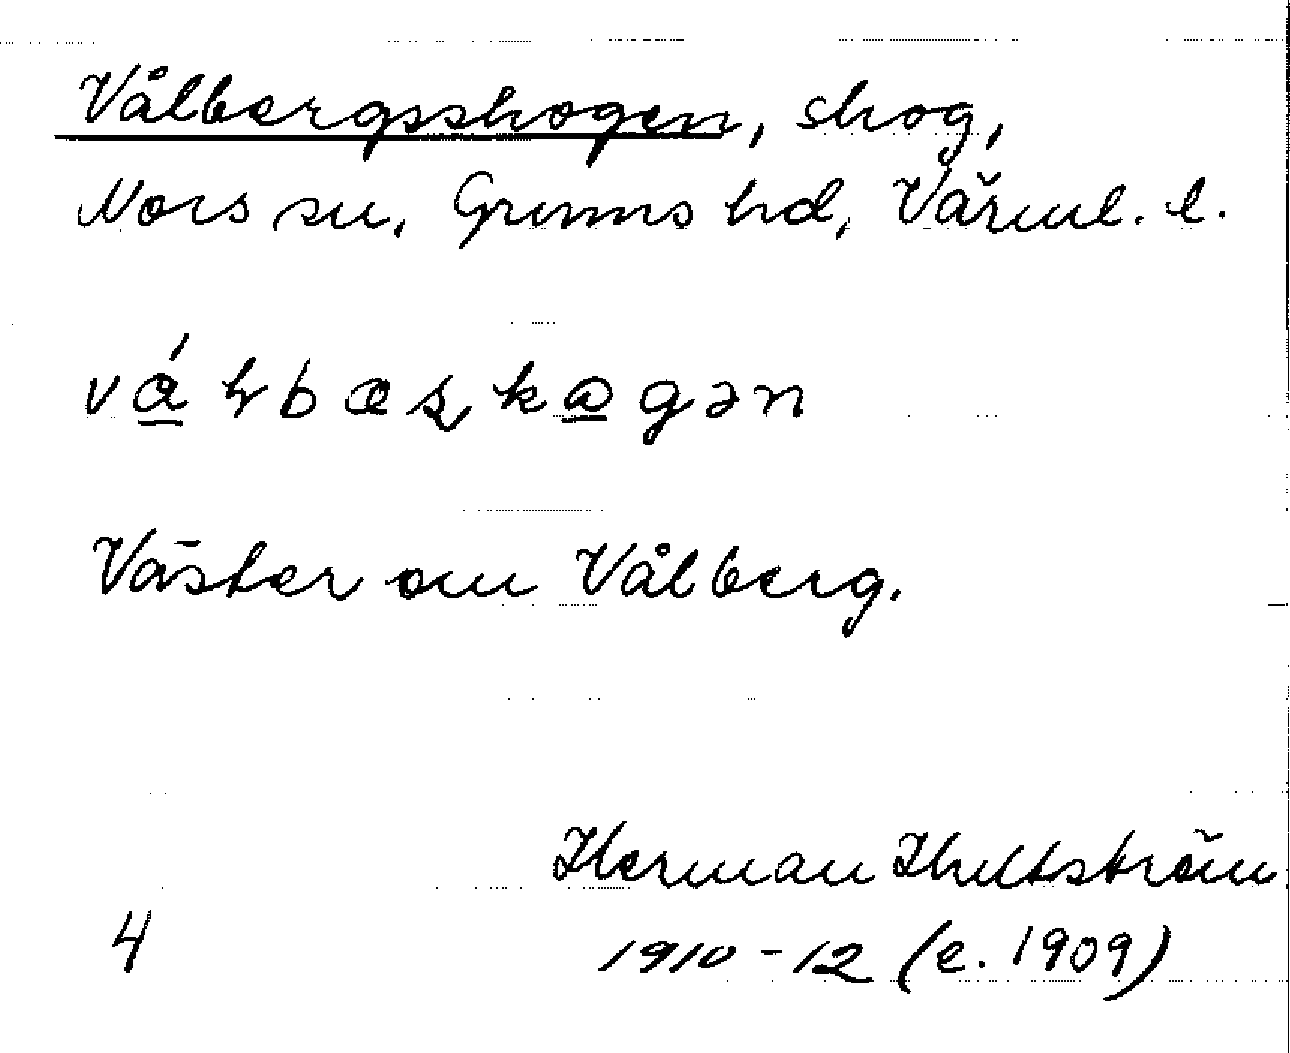 Vålbergsskogen, skog,
Nors sn, Grums hd, Värml. l.
Väster om Vålberg.
Herman Hultström
4 1910-12 (e. 1909)